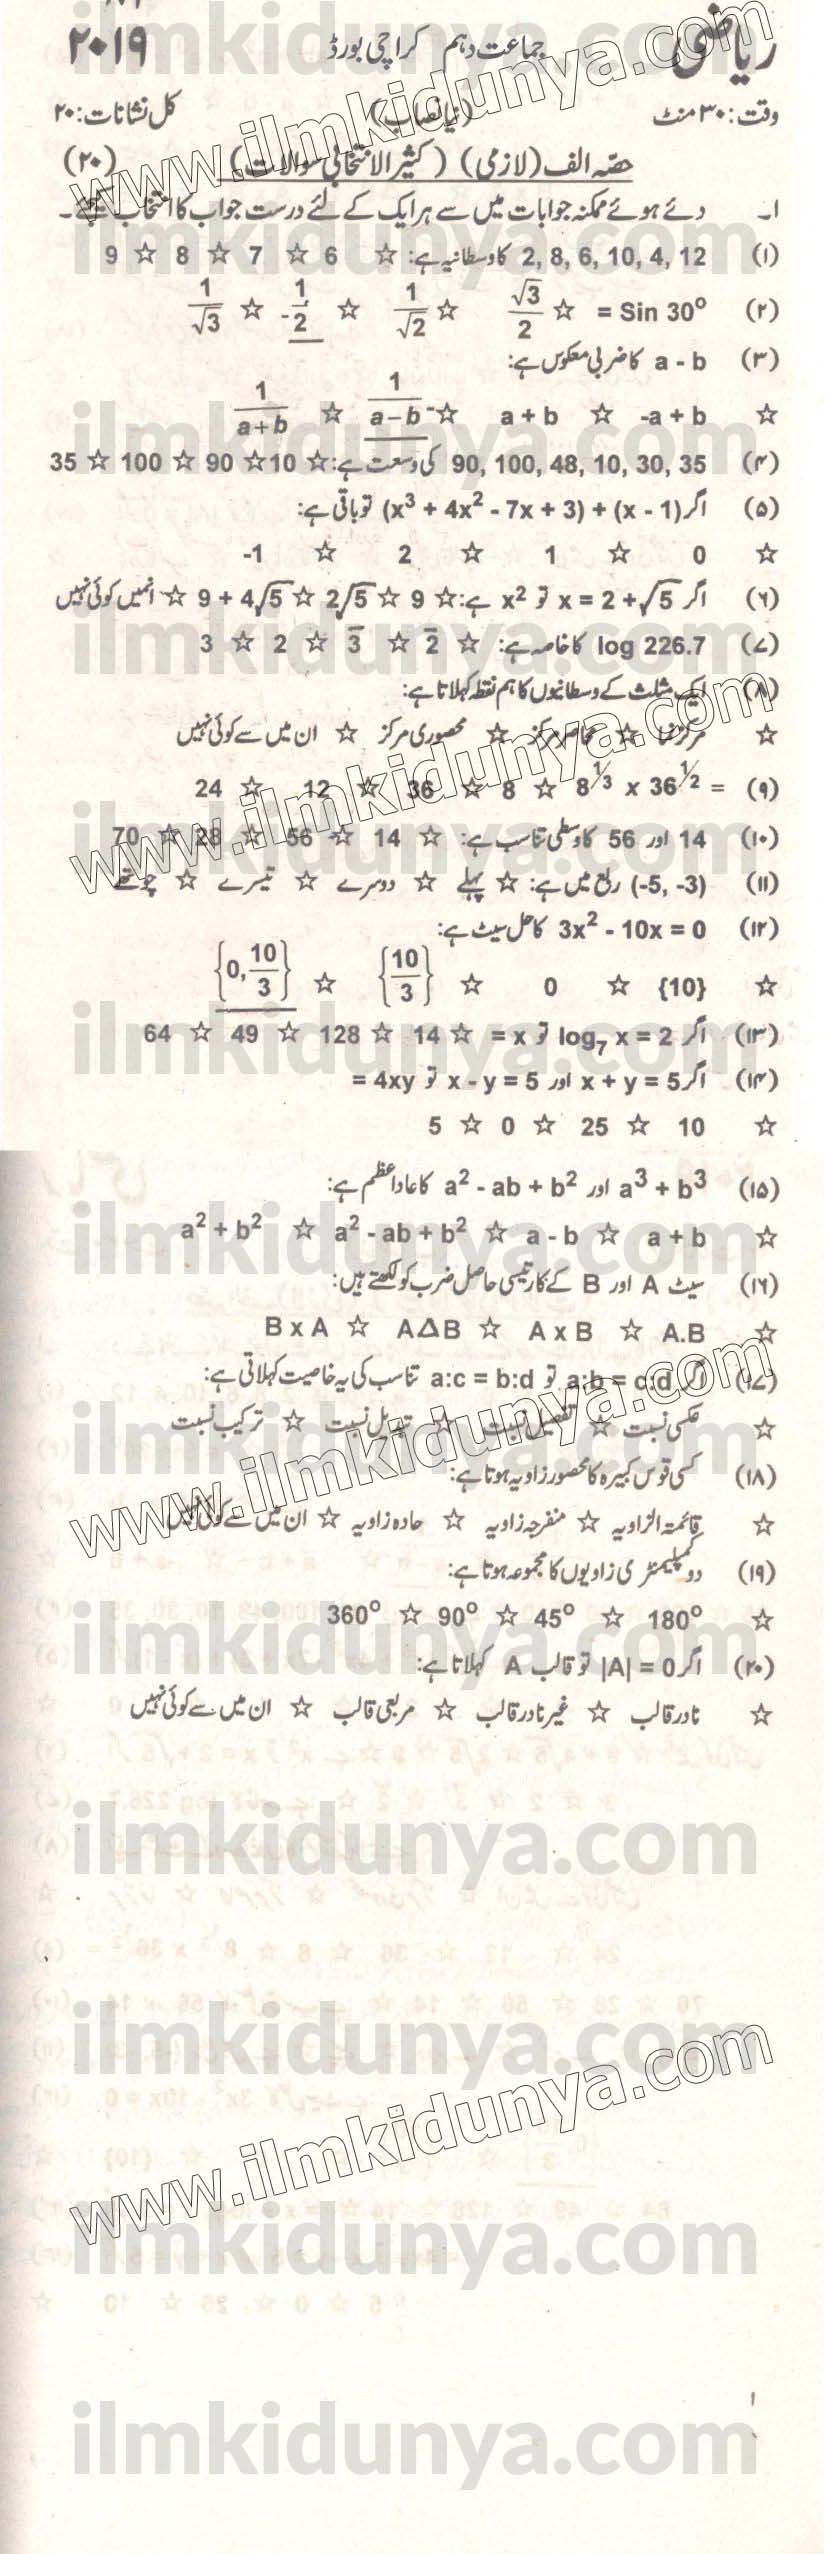 ریاضی جماعت دہم کراچی بورڈ ۲۰۱۹
وقت: ۳۰ منٹ (نیا نصاب) کل نشانات: ۲۰
حصّہ الف (لازمی) (کثیر الانتخابی سوالات) (۲۰)
۱۔ دئے ہوئے ممکنہ جوابات میں سے ہر ایک کے لئے درست جواب کا انتخاب کیجئے۔
(۱) 2, 8, 6, 10, 4, 12 کا وسطانیہ ہے: ☆ 6 ☆ 7 ☆ 8 ☆ 9
(۲) = Sin 30° ☆ √3/2 ☆ 1/√2 ☆ -1/2 ☆ 1/√3
(۳) a - b کا ضربی معکوس ہے:
☆ -a + b ☆ a + b ☆ 1/(a-b) ☆ 1/(a+b)
(۴) 90, 100, 48, 10, 30, 35 کی وسعت ہے: ☆ 10 ☆ 90 ☆ 100 ☆ 35
(۵) اگر (x³ + 4x² - 7x + 3) + (x - 1) تو باقی ہے:
☆ 0 ☆ 1 ☆ 2 ☆ -1
(۶) اگر x = 2 + √5 تو x² ہے: ☆ 9 ☆ 2√5 ☆ 9 + 4√5 ☆ انمیں کوئی نہیں
(۷) log 226.7 کا خاصہ ہے: ☆ 2̄ ☆ 3̄ ☆ 2 ☆ 3
(۸) ایک مثلث کے وسطانیوں کا ہم نقطہ کہلاتا ہے:
☆ مرکز نما ☆ محاصر مرکز ☆ محصوری مرکز ☆ ان میں سے کوئی نہیں
(۹) = 8^⅓ x 36^½ ☆ 8 ☆ 36 ☆ 12 ☆ 24
(۱۰) 14 اور 56 کا وسطی تناسب ہے: ☆ 14 ☆ 56 ☆ 28 ☆ 70
(۱۱) (-5, -3) ربع میں ہے: ☆ پہلے ☆ دوسرے ☆ تیسرے ☆ چوتھے
(۱۲) 3x² - 10x = 0 کا حل سیٹ ہے:
☆ {10} ☆ 0 ☆ {10/3} ☆ {0, 10/3}
(۱۳) اگر log₇ x = 2 تو x = ☆ 14 ☆ 128 ☆ 49 ☆ 64
(۱۴) اگر x + y = 5 اور x - y = 5 تو 4xy =
☆ 10 ☆ 25 ☆ 0 ☆ 5
(۱۵) a³ + b³ اور a² - ab + b² کا عاداعظم ہے:
☆ a + b ☆ a - b ☆ a² - ab + b² ☆ a² + b²
(۱۶) سیٹ A اور B کے کارتیسی حاصل ضرب کو لکھتے ہیں:
☆ A.B ☆ A x B ☆ AΔB ☆ B x A
(۱۷) اگر a:b = c:d تو a:c = b:d تناسب کی یہ خاصیت کہلاتی ہے:
☆ عکسی نسبت ☆ تفصیل نسبت ☆ تبدیل نسبت ☆ ترکیب نسبت
(۱۸) کسی قوس کبیرہ کا محصور زاویہ ہوتا ہے:
☆ قائمتہ الزاویہ ☆ منفرجہ زاویہ ☆ حادہ زاویہ ☆ ان میں سے کوئی نہیں
(۱۹) دو کمپلیمنٹری زاویوں کا مجموعہ ہوتا ہے:
☆ 180° ☆ 45° ☆ 90° ☆ 360°
(۲۰) اگر |A| = 0 تو قالب A کہلاتا ہے:
☆ نادر قالب ☆ غیر نادر قالب ☆ مربعی قالب ☆ ان میں سے کوئی نہیں
ilmkidunya.com
www.ilmkidunya.com